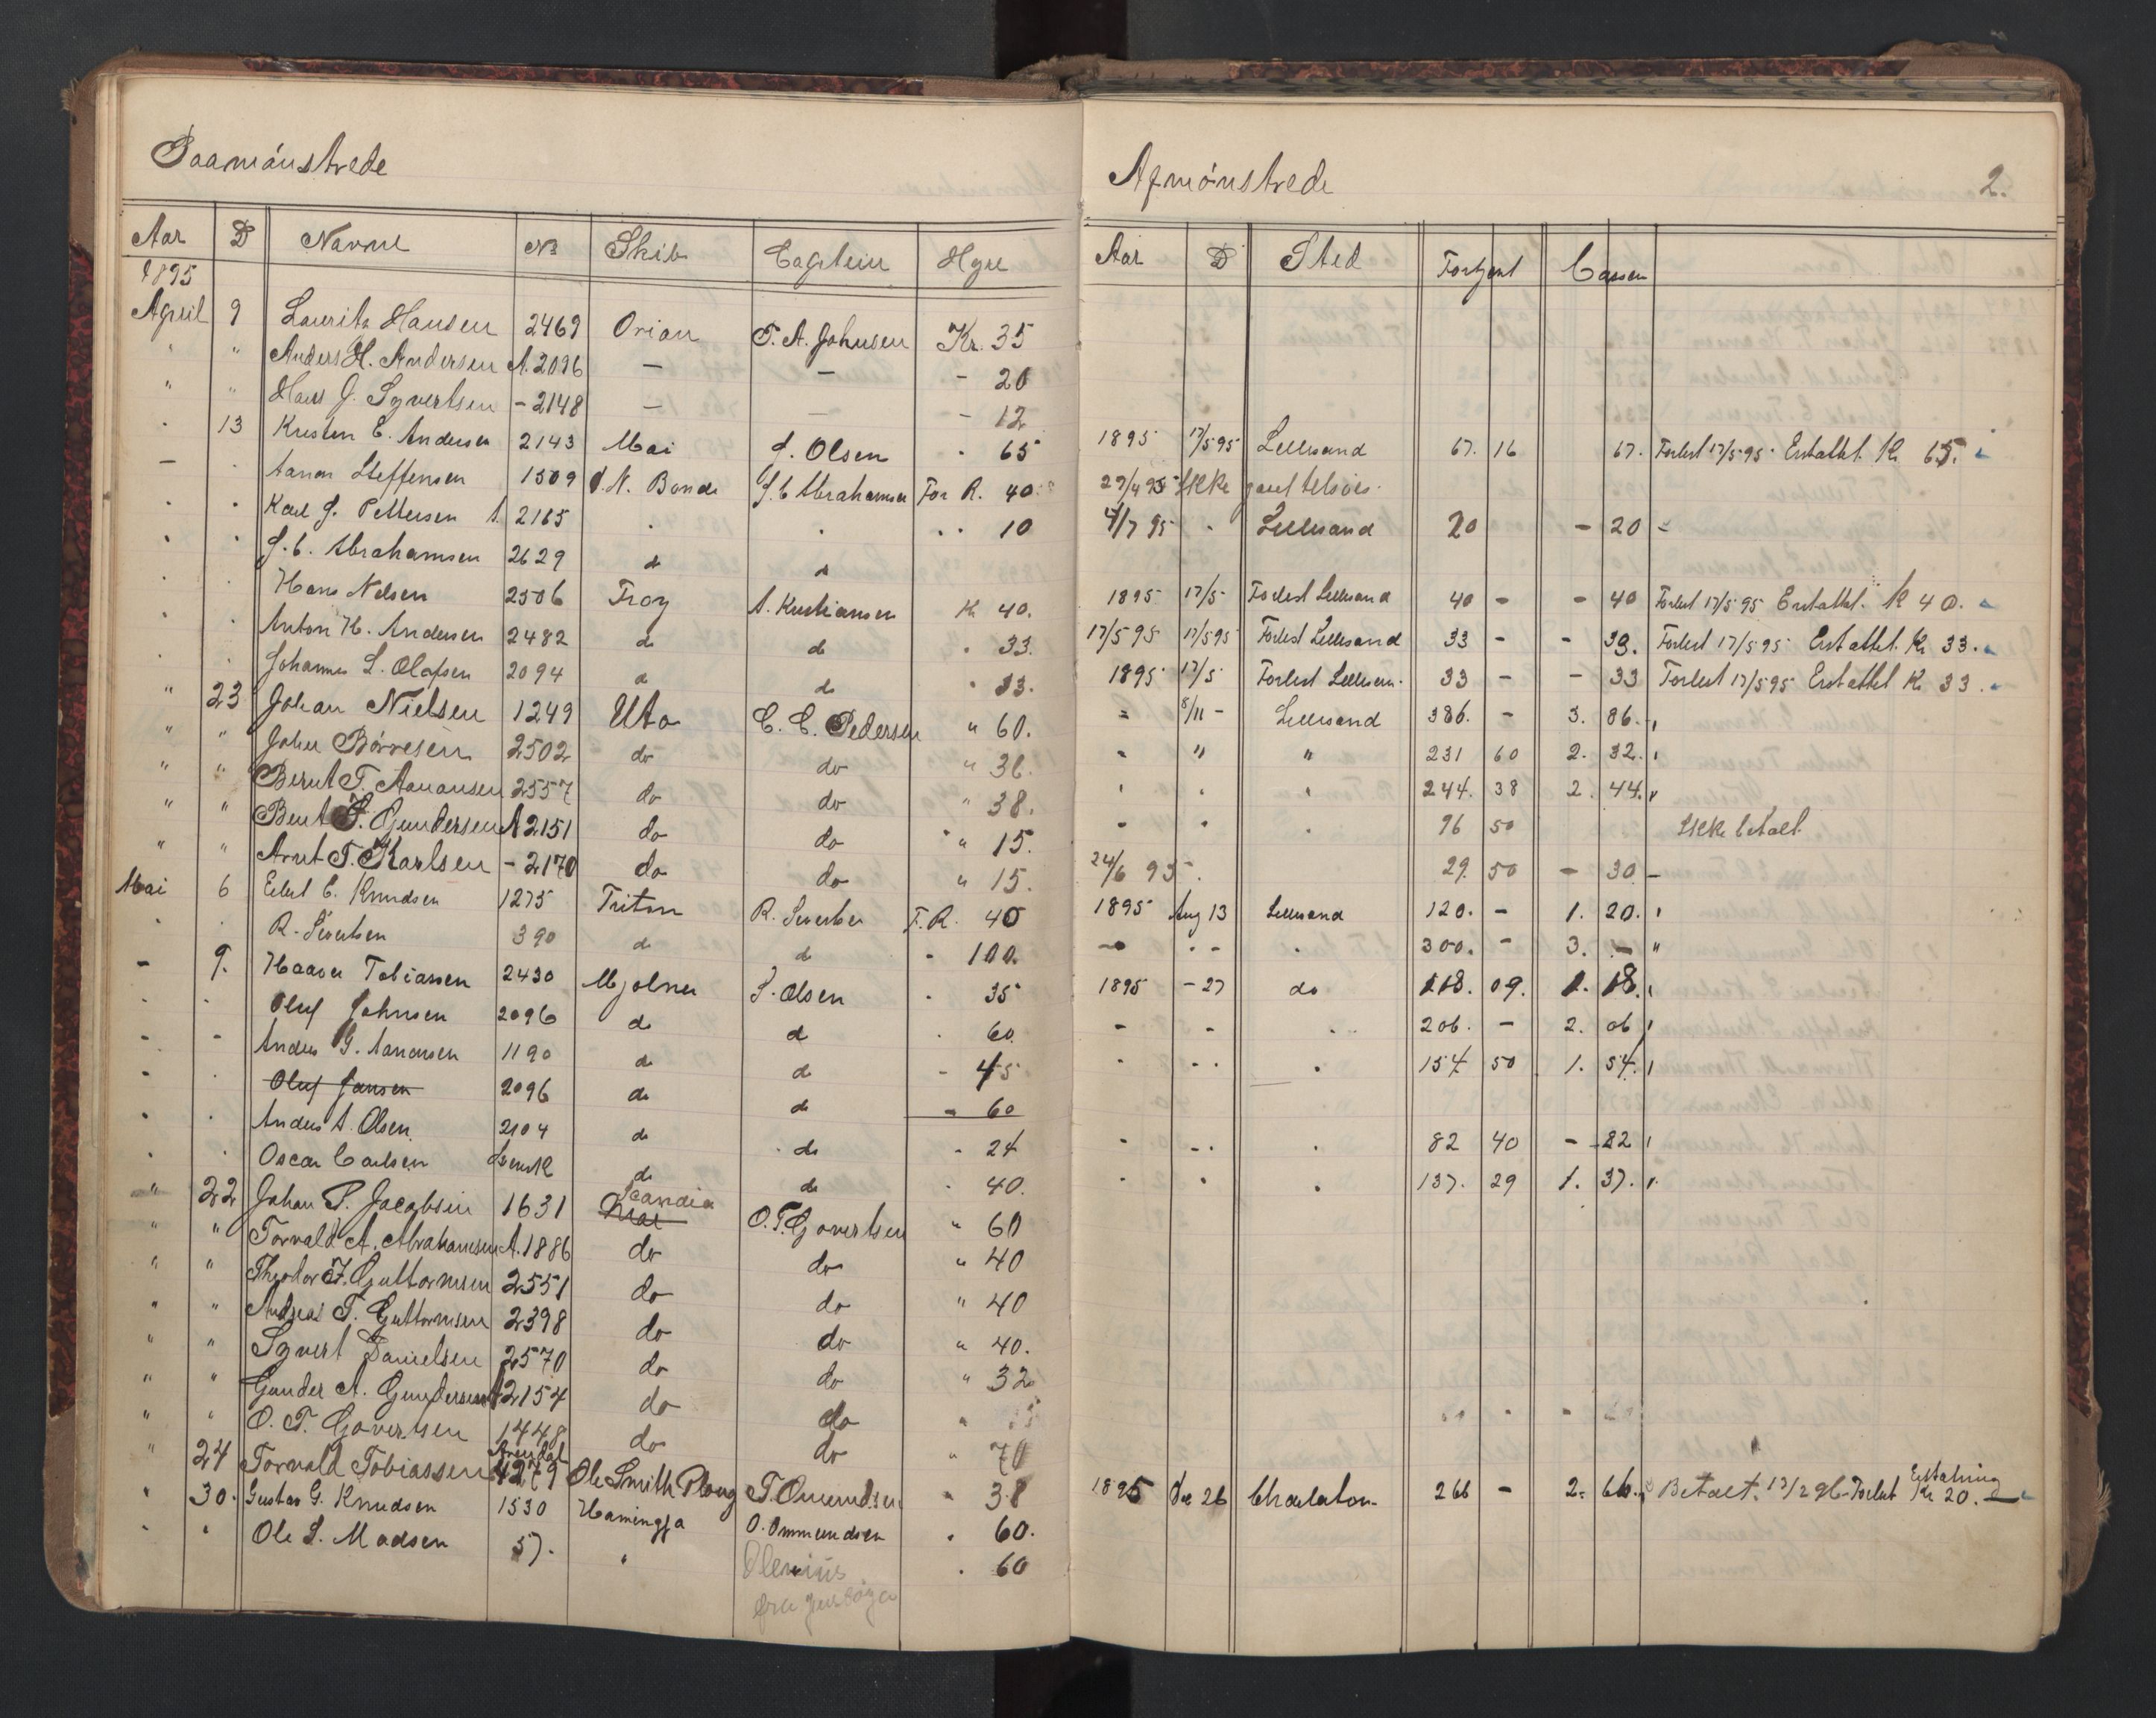 Paamönstrede
Aar D Navne No Skib Captein Hyre
1895
April 9 Lauritz Hansen 2469 Orion T. A. Johnsen Kr. 35
" " Anders H. Andersen A. 2096 — — - 20
" " Hans J. Syvertsen - 2148 — — - 12
" 13 Kristen E. Andersen 2143 Mai J. Olsen " 65
— " Aanon Steffensen 1509 J. N. Bonde J. C. Abrahamsen For R. 40
" " Karl J. Pettersen A. 2165 " " " " 10
" " J. C. Abrahamsen 2629 do do
" " Hans Nelsen 2506 Troy A. Kristiansen K 40.
" " Anton K. Andersen 2482 do do " 33.
" " Johannes L. Olafsen 2094 do do " 33.
" 23 Johan Nielsen 1249 Uto C. C. Pedersen " 60.
" " Johan Börresen 2502 do do " 36.
" " Berut T. Aanonsen 2557 do do " 38.
" " Bent S. Gundersen A 2151 do do " 15.
" " Arnt T. Karlsen - 2170 do do " 15.
Mai 6 Eilert C. Knudsen 1275 Triton R. Sivertsen F. R. 40
" " R. Sivertsen 390 do do - 100.
- 9. Haaver Tobiassen 2430 Mjolner S. Olsen " 35
" " Oluf Johnsen 2096 do do " 60
- - Anders G. Aanonsen 1190 do do - 45
" " Oluf Jansen 2096 do do - 60
" " Anders A. Olsen 2104 do do - 24
" " Oscar Carlsen Svensk do do " 40.
" 22 Johan P. Jacobsen 1631 Mai Scandia O. T. Govertsen " 60
" " Torvald A. Abrahamsen A. 1886 do do " 40
" " Theodor F. Guttormsen 2551 do do " 40
" " Andreas T. Guttormsen 2398 do do " 40.
" " Syvert Danielsen 2570 do do " 32
" " Gunder A. Gundersen A 2154 do do "
" " O. T. Govertsen 1448 do do " 70
" 24 Torvald Tobiassen Arendal 4279 Ole Smith Ploug T. Omundsen " 38
" 30. Gustav G. Knudsen 1530 Hamingja O. Ommundsen " 60.
" " Ole L. Madsen 57. " Olenius " 60
fra
Afmönstrede 2.
Aar D Sted Fortjent Cassen
1895 17/5 95 Lillesand 67. 16 67. Forlist 17/5 95 Erstattet K. 65.
29/4 95 Ikke gaut tilsøis.
4/7 95 " Lillesand 20 - 20 -
1895 17/5 Forlist Lillesand 40 - - 40 Forlist 17/5 95 Erstattet. K 40.
17/5 95 17/5 95 Forlist Lillesand 33 - - 33. Forlist 17/5 95 Erstattet K. 33.
1895 17/5 Forlist Lillesan. 33 - - 33 Forlist 17/5 95 Erstattet K. 33.
" 8/11 - Lillesand 386. - 3. 86. "
- " " 231 60 2. 32. "
" " " 244. 38 2. 44. "
- " " 96 50 Ikke betalt
24/6 95 " 29. 50 - 30 -
1895 Aug 13 Lillesand 120. - 1. 20. "
- " - " 300. - 3. - "
1895 - 27 do 118. 09. 1. 18. "
- - " 206. - 2. 06 "
" " " " 154 50 1. 54. "
- - " " 82 40 - 82 "
" " " 137. 29 1. 37. "
1895 De 26 Charlaton 266 - 2. 66. Betalt. 13/2 96 - Forlist Erstatning Kr 20. -